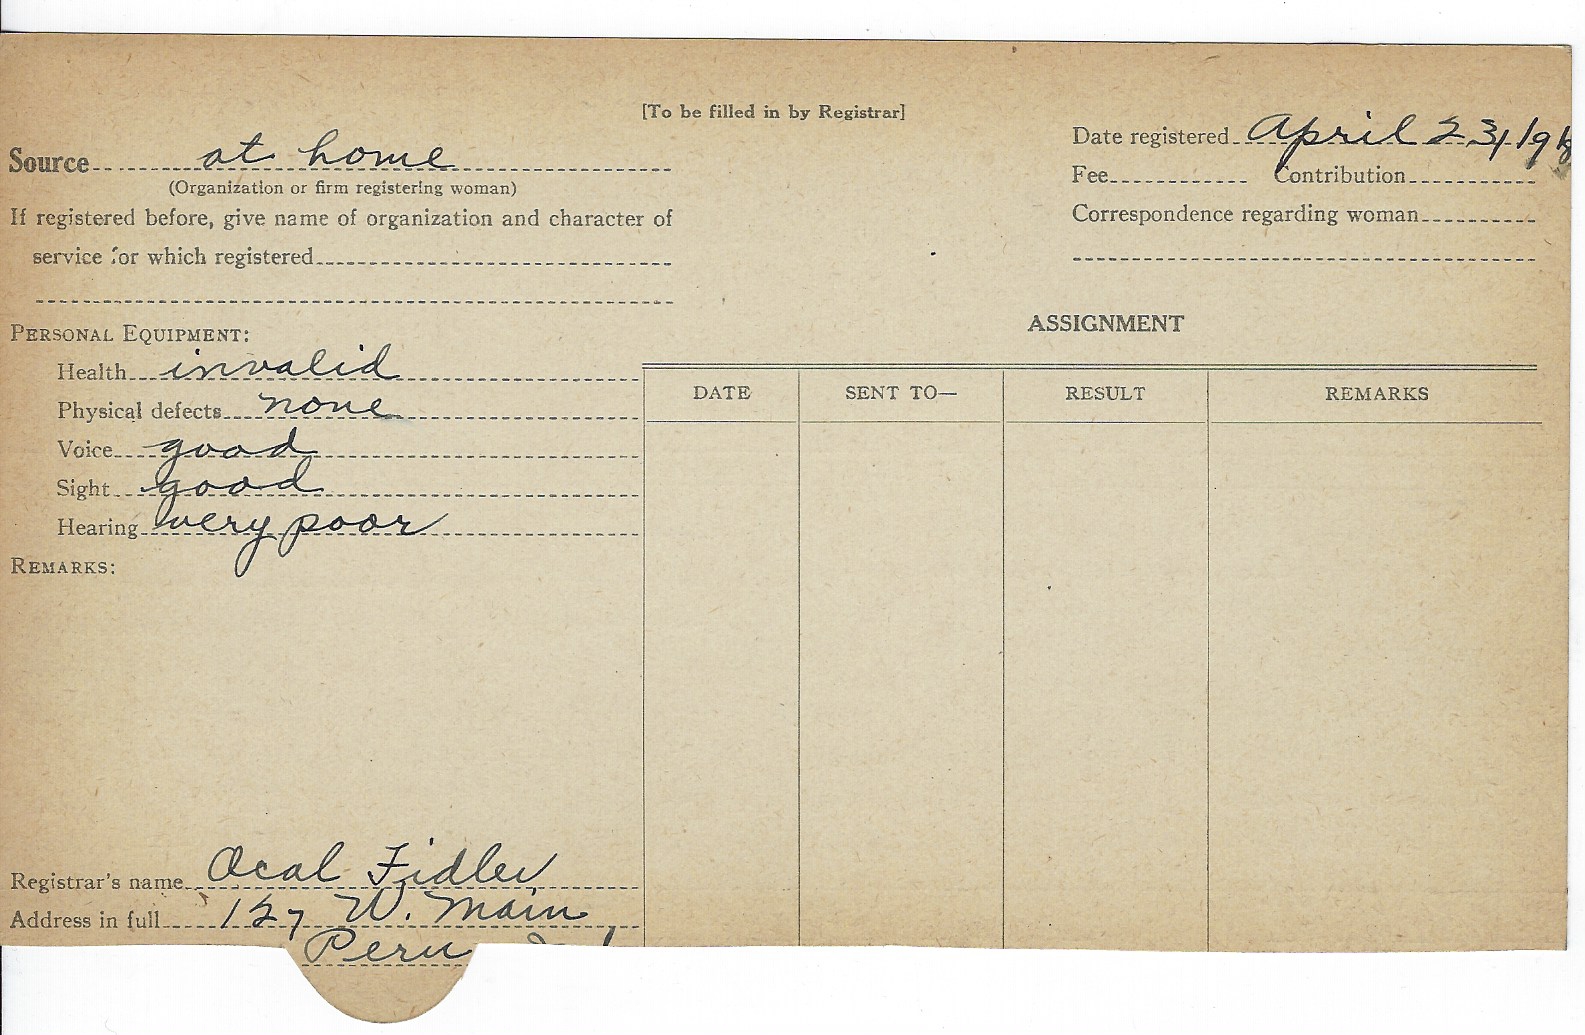 [To be filled in by Registrar]
Source at home
(Organization or firm registering woman)
If registered before, give name of organization and character of
service for which registered
Date registered April 23, 191
Fee Contribution
Correspondence regarding woman
PERSONAL EQUIPMENT:
Health invalid
Physical defects none
Voice good
Sight good
Hearing very poor
REMARKS:
ASSIGNMENT
DATE SENT TO— RESULT REMARKS
Registrar's name Ocal Fidler
Address in full 127 W. Main
Peru